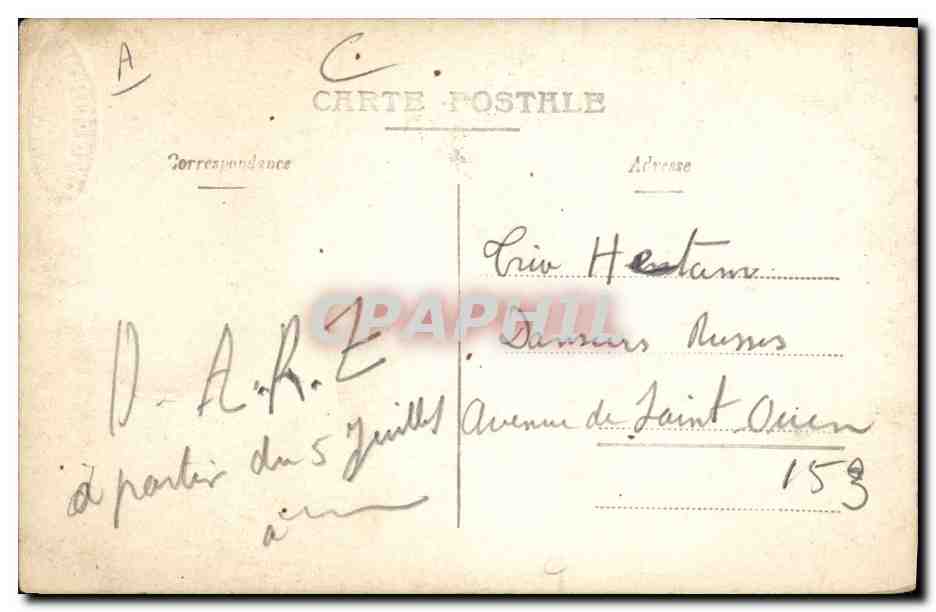 A C.
CARTE POSTALE
Correspondance
Adresse
Trio Hentano
Danseurs Russes
Avenue de Saint Ouen
153
D. A. R. Z
à partir du 5 Juillet
à
CPAPHIL